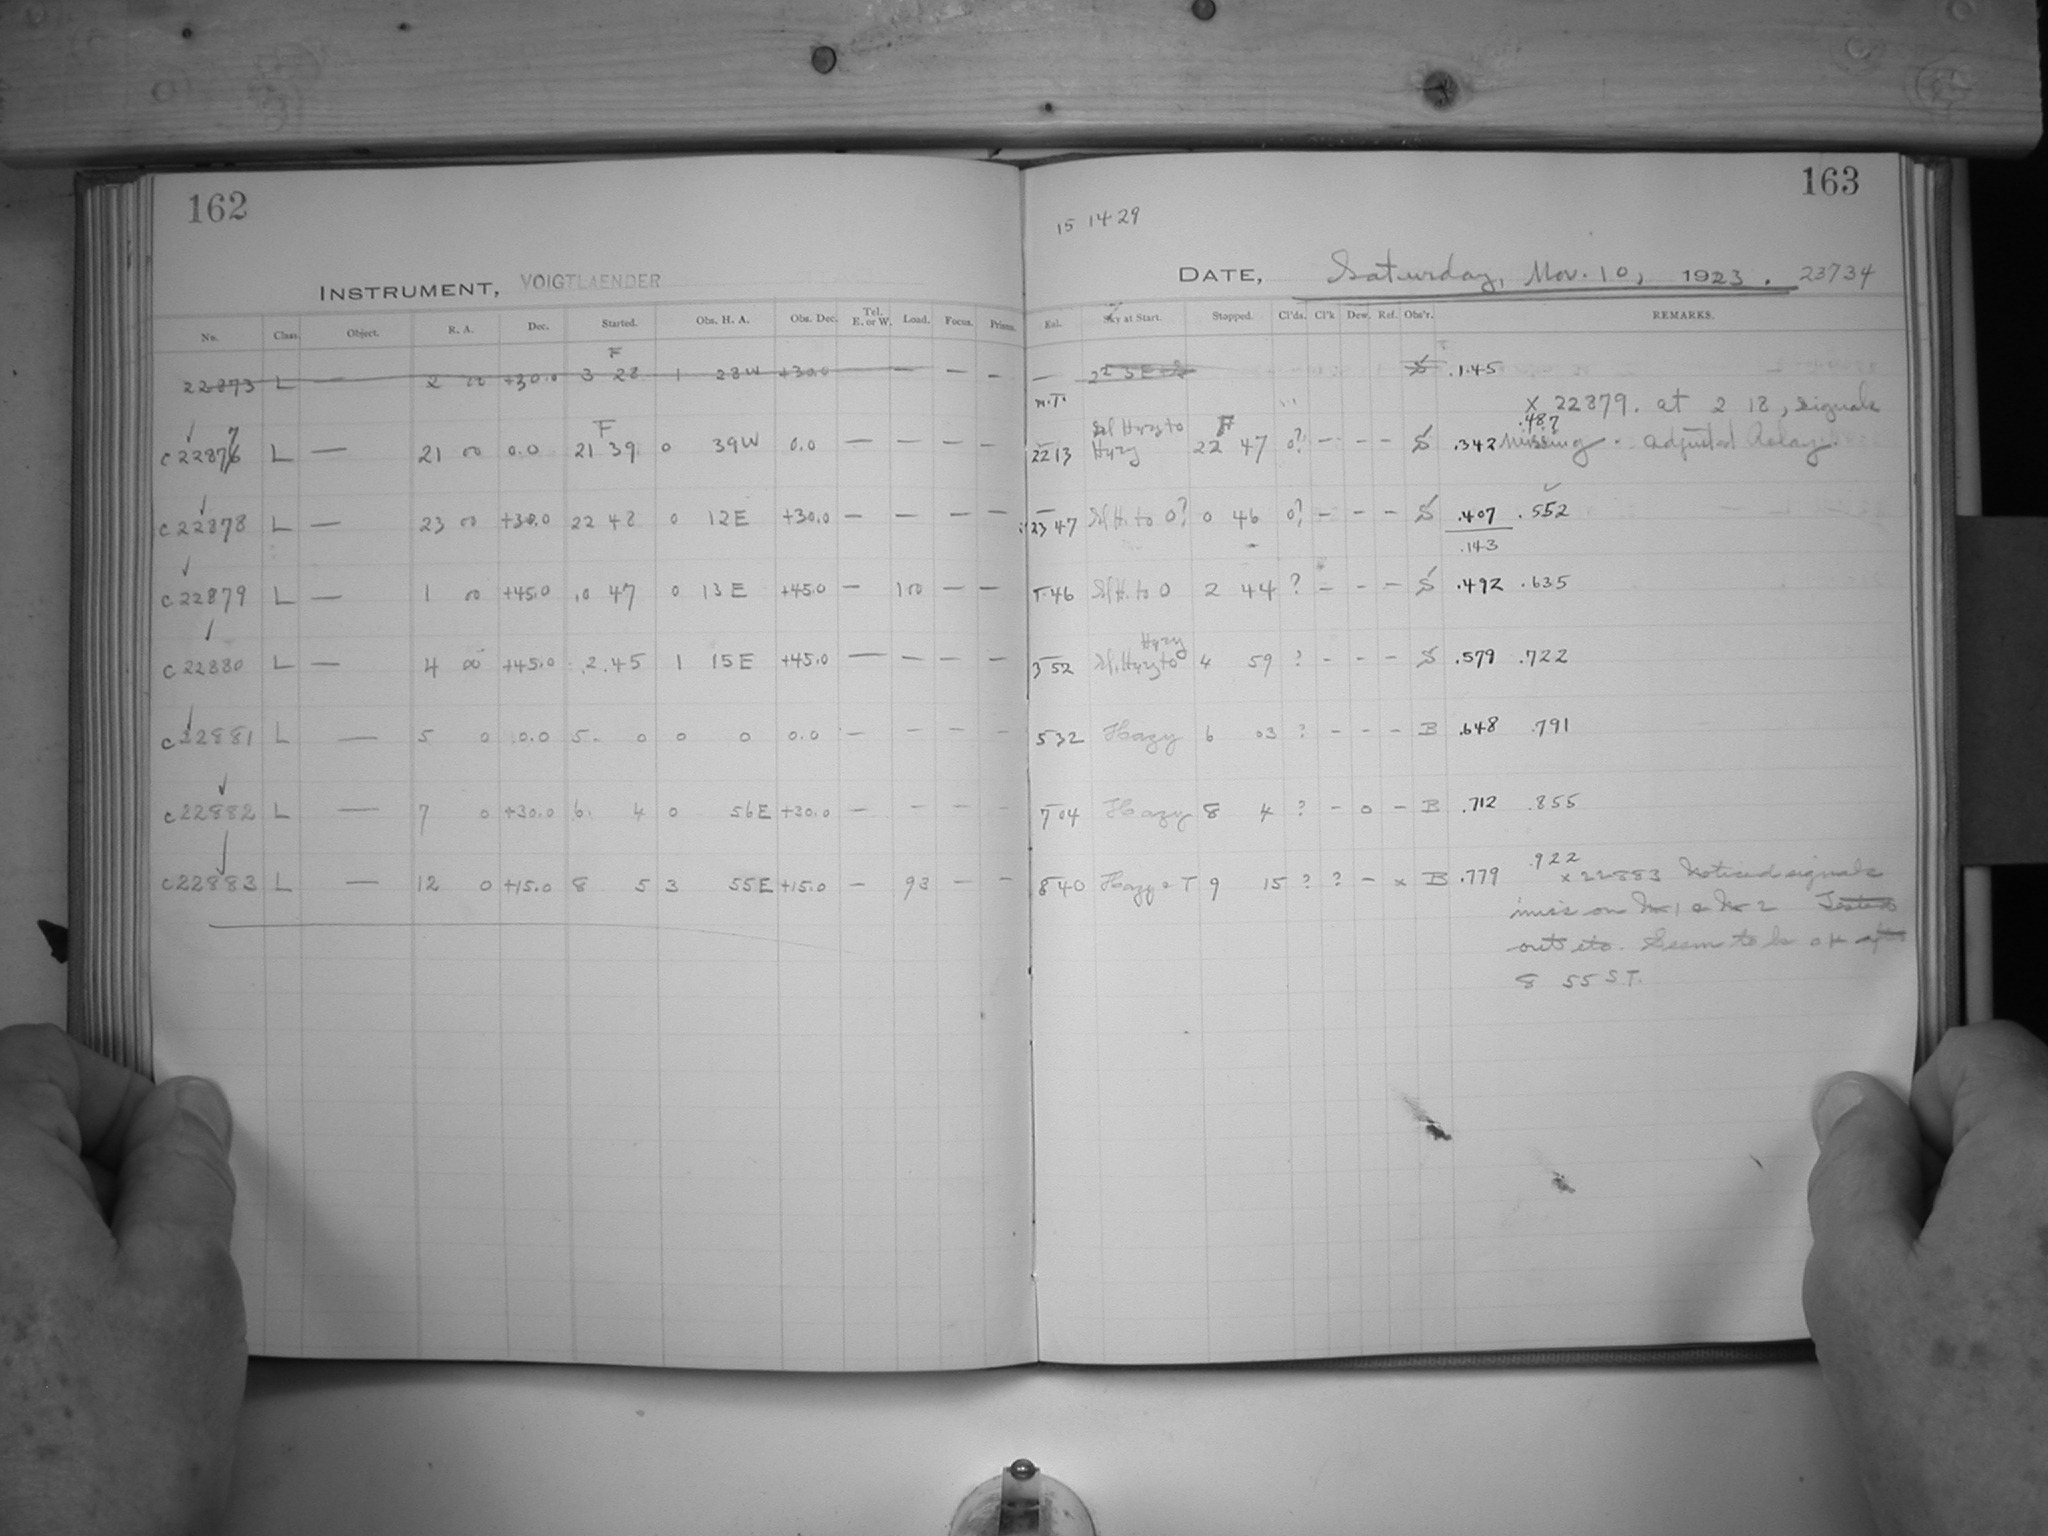 162
163
15 14 29
INSTRUMENT, VOIGTLAENDER
DATE, Saturday, Nov. 10, 1923. 23734
No. Class. Object. R. A. Dec. Started. Obs. H. A. Obs. Dec. Tel. E. or W. Load. Focus. Prisms. Exl. Sky at Start. Stopped. Cl'ds. Cl'k Dew. Ref. Obs'r. REMARKS.
F
22873 L — 2 00 +30.0 3 28 1 28W +30.0 — — — — S .145
m.T.
X 22879. at 2 18, signals
7 F Sl Hazy to F .487
c 22876 L — 21 00 0.0 21 39 0 39W 0.0 — — — — 22 13 Hazy 22 47 0? — — — S .342 missing. adjusted relay.
c 22878 L — 23 00 +30.0 22 48 0 12E +30.0 — — — — 23 47 Sl H. to 0? 0 46 0? — — — S .407 .552
.143
c 22879 L — 1 00 +45.0 0 47 0 13E +45.0 — 100 — — 1 46 Sl H. to 0 2 44 ? — — — S .492 .635
Hazy
c 22880 L — 4 00 +45.0 2.45 1 15E +45.0 — — — — 3 52 Sl. Hazy to 4 59 ? - - - S .579 .722
c 22881 L — 5 0 0.0 5. 0 0 0 0.0 — - - - 5 32 Hazy 6 03 ? - - - B .648 .791
c 22882 L — 7 0 +30.0 6. 4 0 56E +30.0 — - - - 7 04 Hazy 8 4 ? - 0 - B .712 .855
.922
c 22883 L — 12 0 +15.0 8 5 3 55E +15.0 — 93 - - 8 40 Hazy & T 9 15 ? ? - x B .779 x 22883 Noticed signals
miss on No 1 & No 2 Tested
out etc. Seem to be OK after
8 55 S.T.